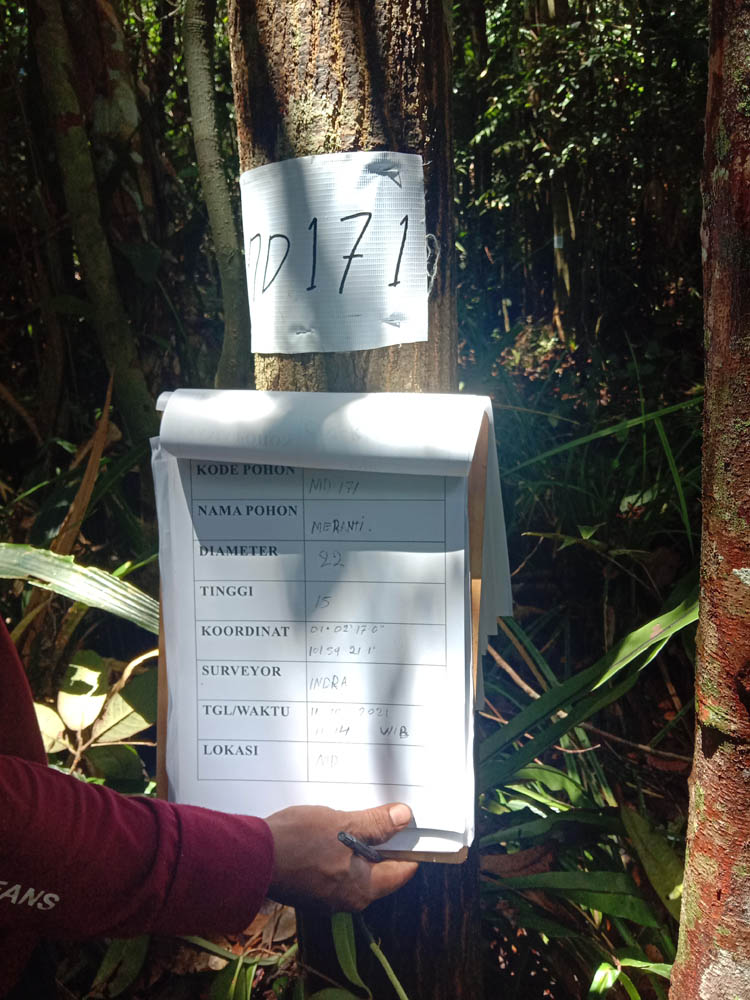 MD171
KODE POHON MD 171
NAMA POHON MERANTI.
DIAMETER 22
TINGGI 15
KOORDINAT 01° 02' 17.0"
101 59 21 1"
SURVEYOR INDRA
TGL/WAKTU 11 10 2021
11 14 WIB
LOKASI MD
EANS